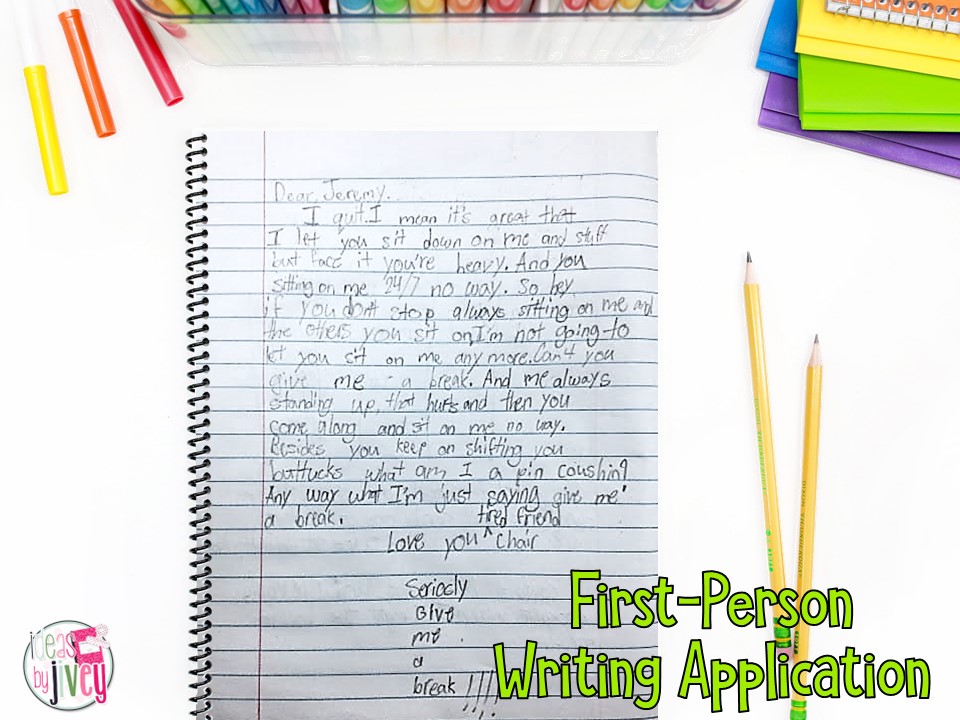 Dear, Jeremy.
I quit. I mean it's great that
I let you sit down on me and stuff
but face it you're heavy. And you
sitting on me 24/7 no way. So hey
if you don't stop always sitting on me and
the others you sit on, I'm not going to
let you sit on me any more. Can't you
give me a break. And me always
standing up, that hurts and then you
come along and sit on me no way.
Besides you keep on shifting you
buttucks what am I a pin coushing
Any way what I'm just saying give me
a break.
tired friend
Love you ^ Chair
Seriocly
Give
me
a
break !!!!
First-Person
Writing Application
ideas
by jivey